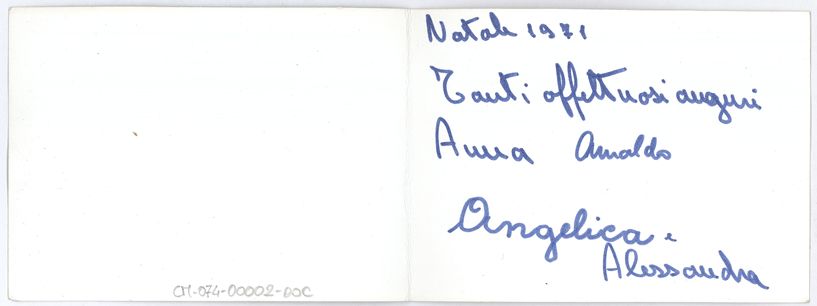 Natale 1971
Tanti affettuosi auguri
Anna Arnaldo
Angelica e
Alessandra
CM-074-00002-DOC